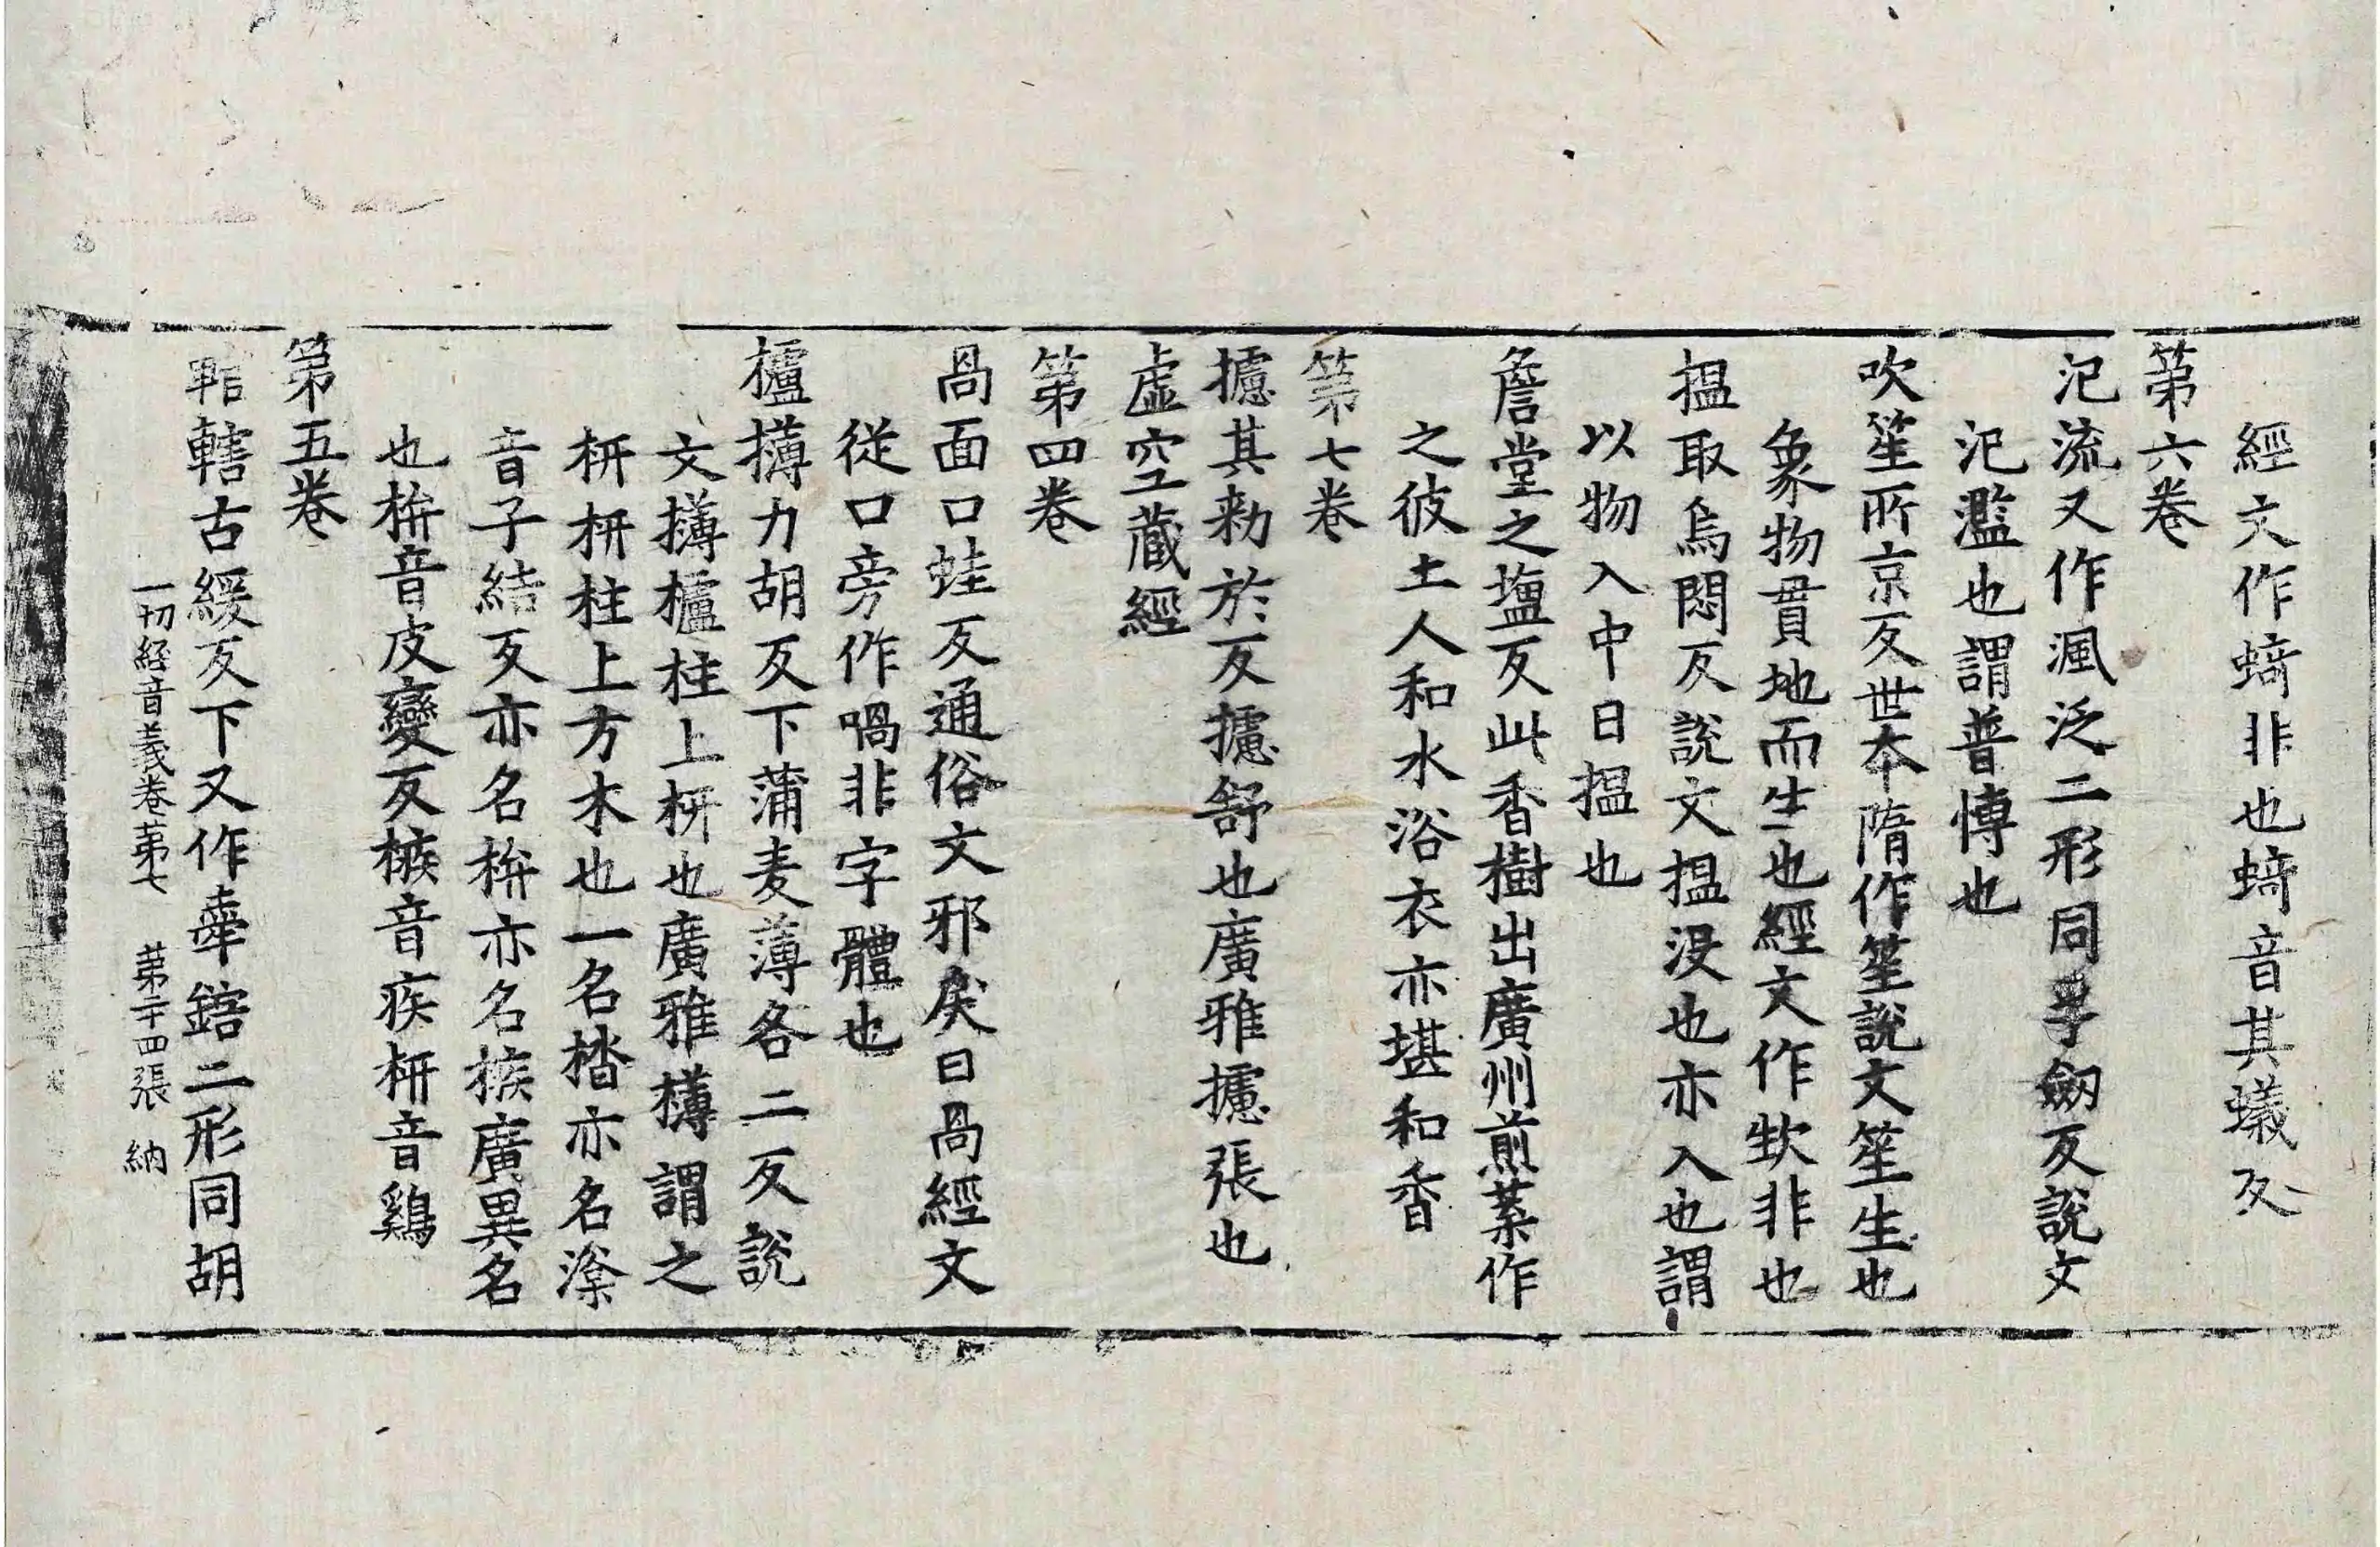 經文作蜞非也蜞音其蟻反
第六卷
氾流又作渢泛二形同孚劒反說文
氾濫也謂普愽也
吹笙所京反世本隋作笙說文笙生也
象物貫地而生也經文作㰞非也
揾取烏悶反說文揾没也亦入也謂
以物入中曰揾也
詹堂之塩反此香樹出廣州煎葉作
之彼土人和水浴衣亦堪和香
第七卷
攄其勑於反攄舒也廣雅攄張也
虛空藏經
第四卷
咼面口蛙反通俗文邪戾曰咼經文
從口旁作喎非字體也
櫨欂力胡反下蒲麦薄各二反說
文欂櫨柱上枅也廣雅欂謂之
枅枅柱上方木也一名楷亦名㴜
音子結反亦名栟亦名槉廣異名
也栟音皮變反槉音疾枅音雞
第五卷
輨轄古緩反下又作舝鎋二形同胡
一切経音義卷第七 第二十四張 納